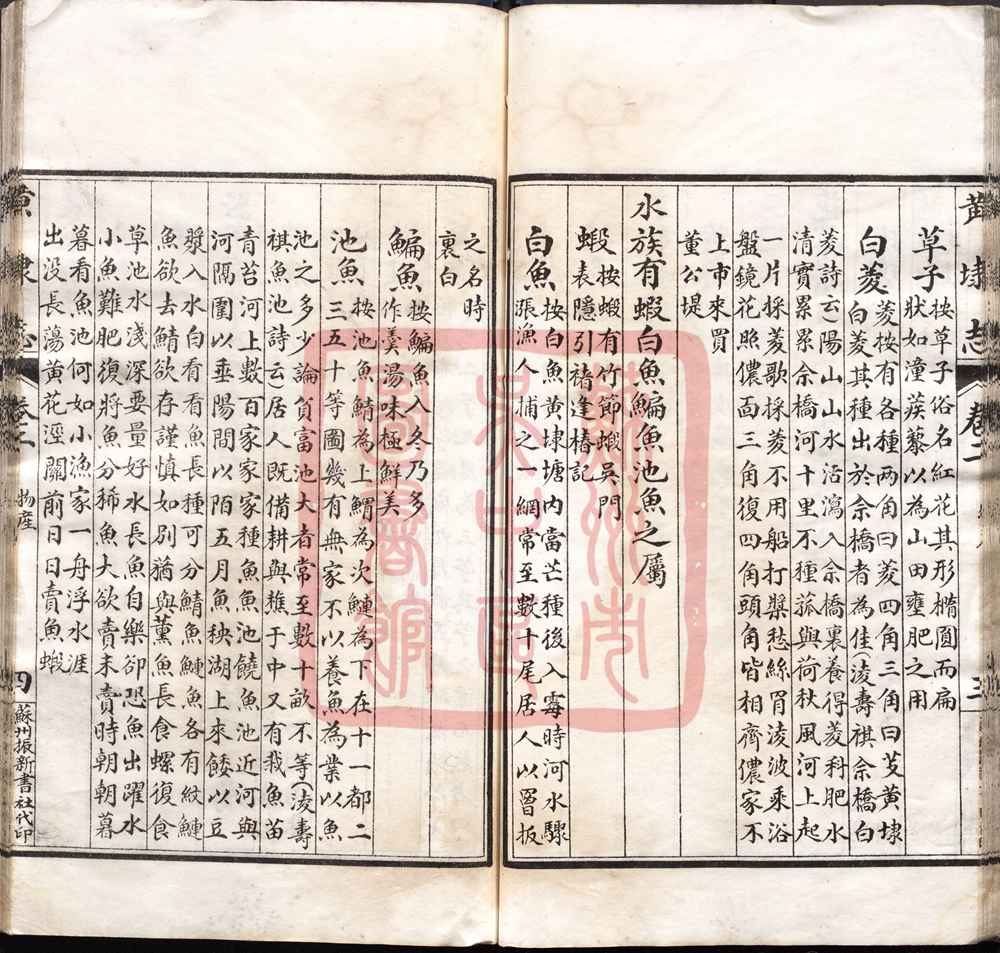 黃埭志
卷二
三
草子按草子俗名紅花其形橢圓而扁
狀如潼蒺藜以為山田壅肥之用
白菱菱按有各種两角曰菱四角三角曰芰黃埭
白菱其種出於佘橋者為佳淩壽祺佘橋白
菱詩云陽山山水沽瀉入佘橋裏養得菱科肥水
清實累累佘橋河十里不種菰與荷秋風河上起
一片採菱歌採菱不用船打槳愁絲罥淩波乘浴
盤鏡花照儂面三角復四角頭角皆相齊儂家不
上市來買
董公堤
水族有蝦白魚鯿魚池魚之屬
蝦按蝦有竹節蝦吳門
表隱引禇逢椿記
白魚按白魚黃埭塘内當芒種後入霉時河水驟
漲漁人捕之一網常至數十尾居人以罾扳
之名時
裏白
鯿魚按鯿魚入冬乃多
作羹湯味極鮮美
池魚按池魚鯖為上鰡為次鰱為下在十一都二
三五十等圖幾有無家不以養魚為業以魚
池之多少論貧富池大者常至數十畝不等(淩壽
祺魚池詩云居人既備耕與樵于中又有栽魚苗
青苔河上數百家家家種魚魚池饒魚池近河與
河隔圍以垂陽間以陌五月魚秧湖上來餧以豆
漿入水白看看魚長種可分鯖魚鰱魚各有紋鰱
魚欲去鯖欲存謹慎如別猶與薰魚長食螺復食
草池水淺深要量好水長魚自樂卻恐魚出躍水
小魚難肥復將魚分稀魚大欲賣未賣時朝朝暮
暮看魚池何如小漁家一舟浮水涯
出没長蕩黃花涇關前日日賣魚蝦
黃埭志
卷二
物産
四
蘇州振新書社代印
蘇州市
吳中區
圖書館